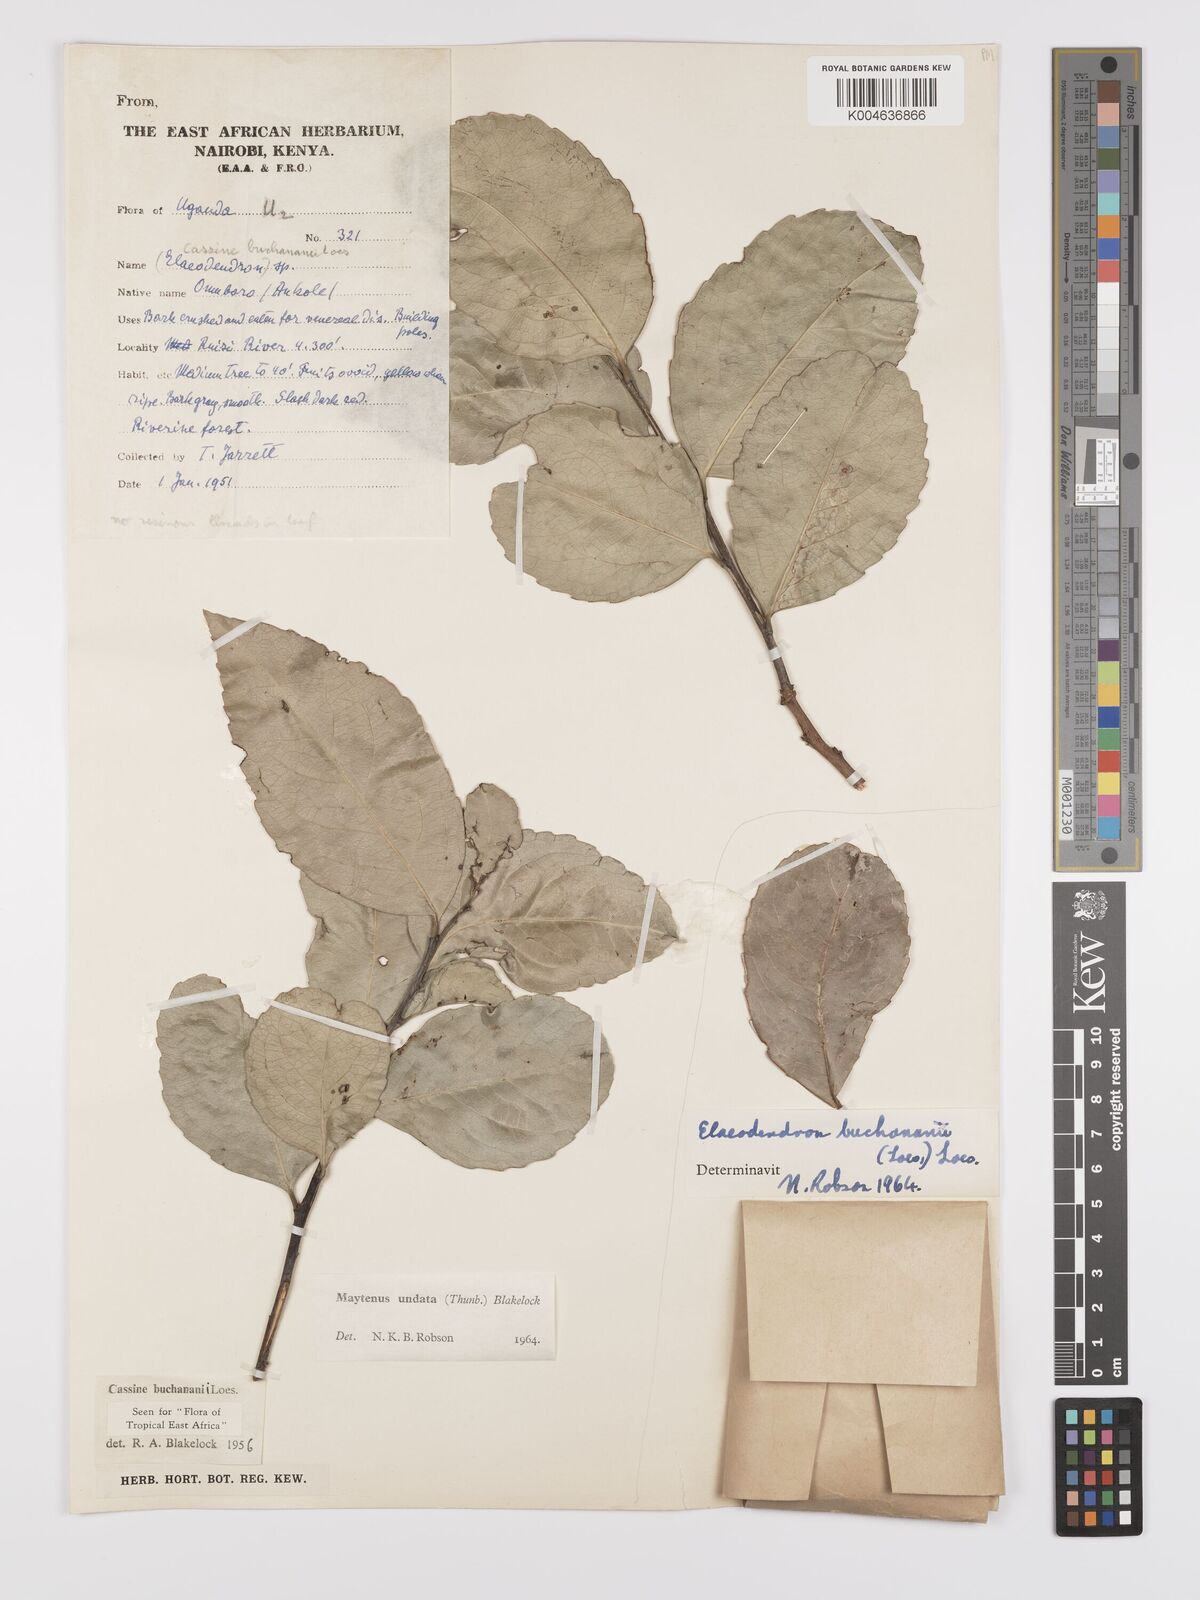 ROYAL BOTANIC GARDENS KEW
K004636866
From,
THE EAST AFRICAN HERBARIUM,
NAIROBI, KENYA.
(E.A.A. & F.R.O.)
Flora of Uganda U2
No. 321
Cassine buchananii Loes
Name (Elaeodendron) sp.
Native name Omuboro (Ankole)
Uses Bark crushed and eaten for venereal dis. Building
poles.
Locality Ruizi River 4,300'.
Habit, etc Medium tree to 40'. Fruits ovoid, yellow when
ripe. Bark gray, smooth. Slash dark red.
Riverine forest.
Collected by T. Jarrett
Date 1 Jan. 1951
no resinous threads in leaf
Elaeodendron buchananii
(Loes.) Loes.
Determinavit
N. Robson 1964.
Maytenus undata (Thunb.) Blakelock
Det. N. K. B. Robson 1964.
Cassine buchananii Loes.
Seen for "Flora of
Tropical East Africa"
det. R. A. Blakelock 1956
HERB. HORT. BOT. REG. KEW.
inches
centimeters
Don Williams
M001230
Royal Botanic Gardens
Kew
copyright reserved
0 1 2 3 4 5 6 7 8 9 10
cm